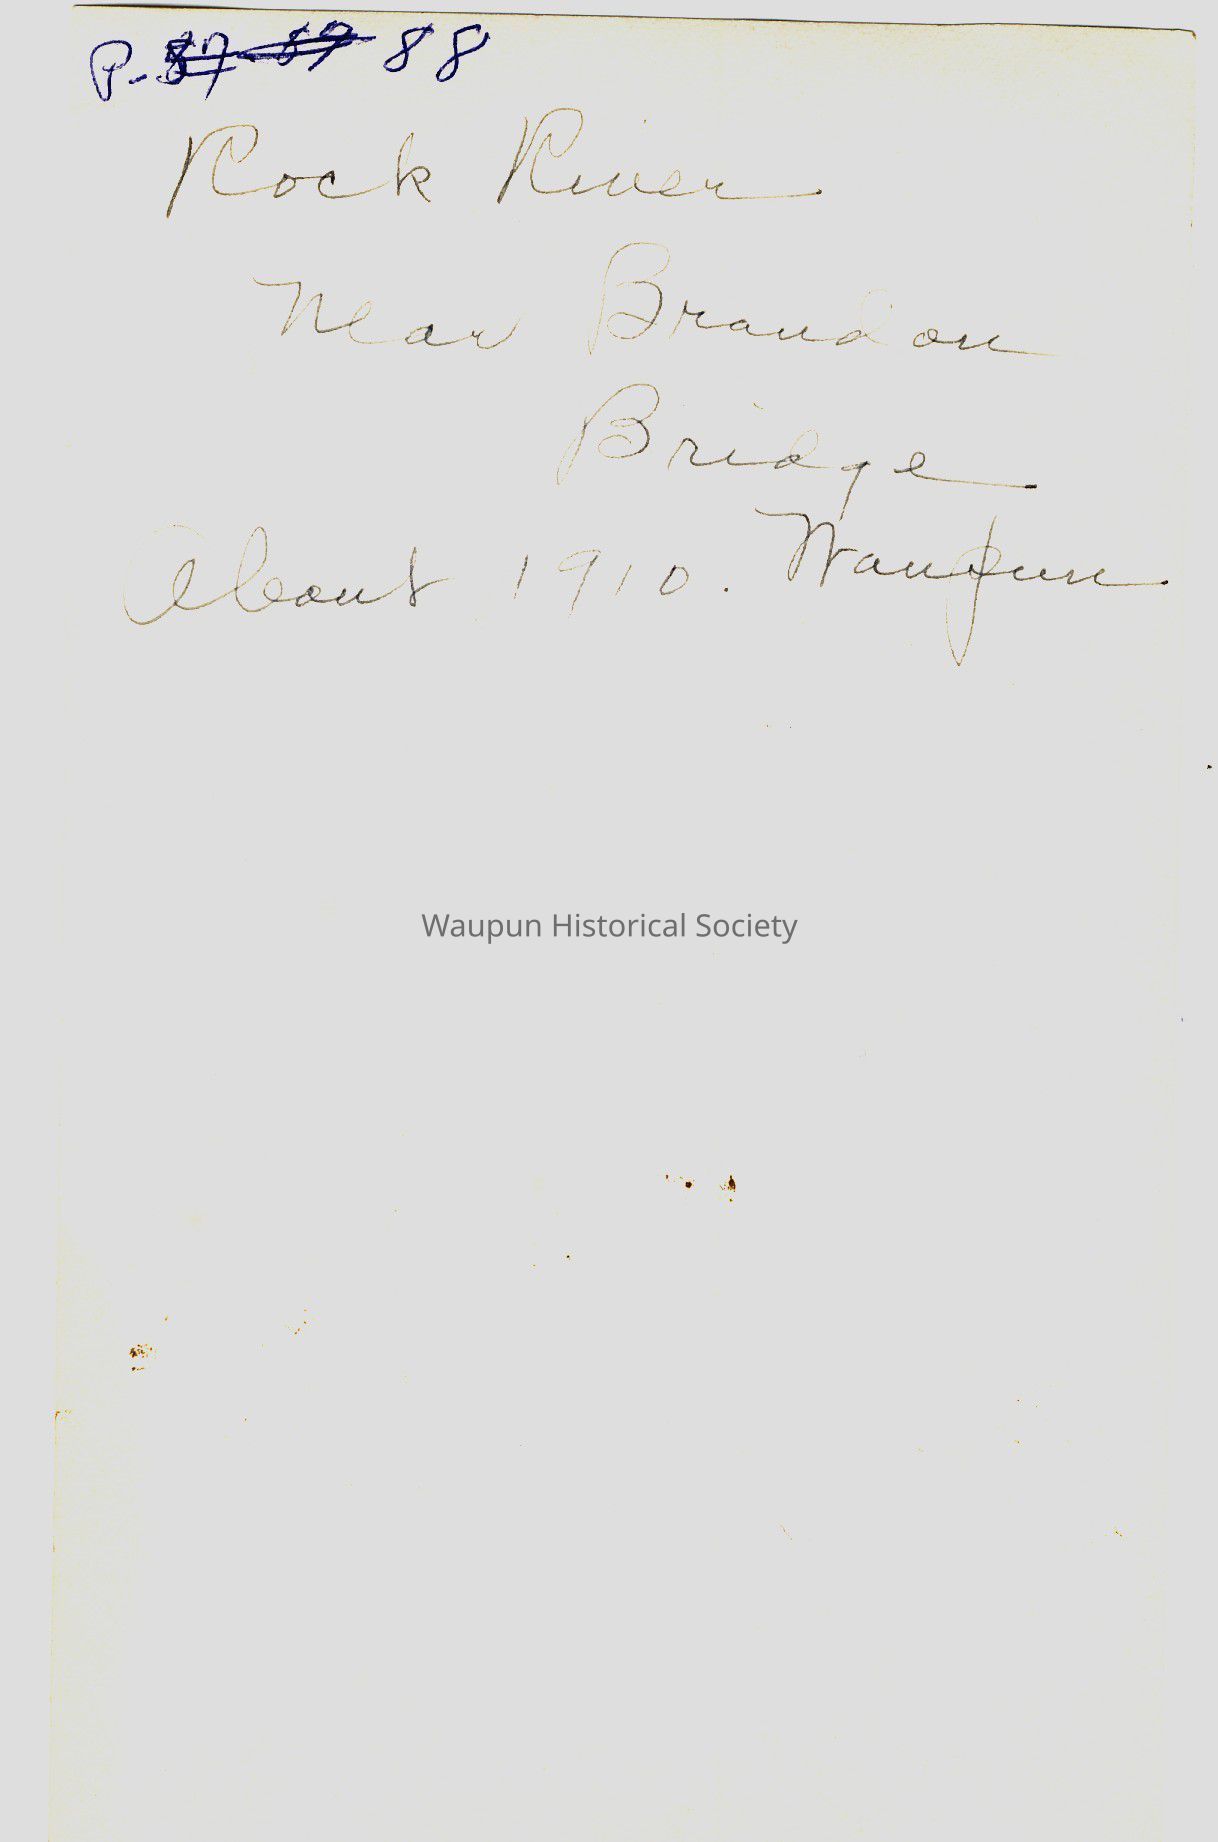 P. 88
Rock River
Near Brandon
Bridge
About 1910. Waupun
Waupun Historical Society